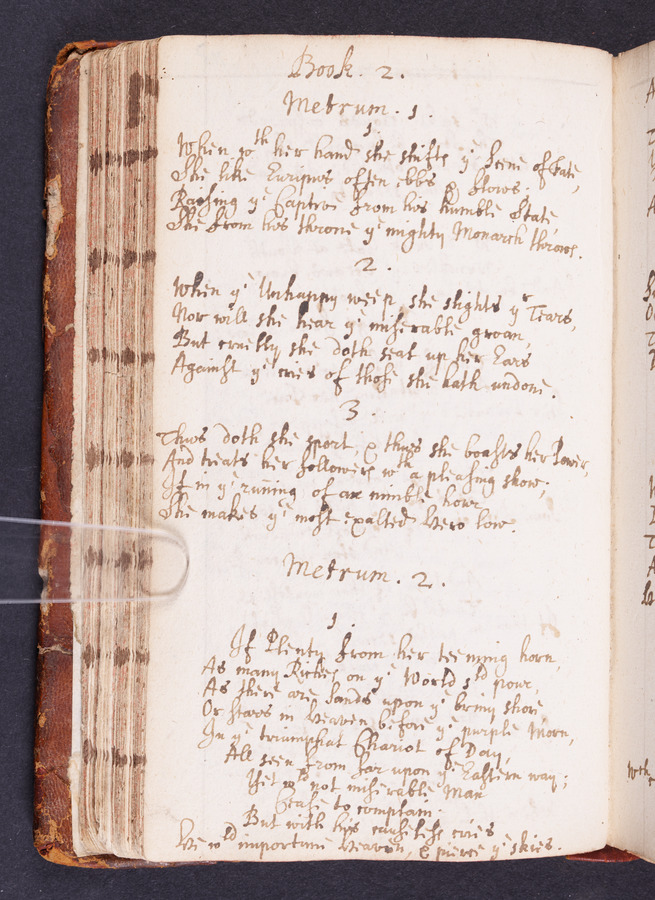 Book. 2.
Metrum. 1.
1.
When wth her hand she shifts ye Scene of Fate,
She like Euripus often ebbs & flows.
Raising ye Captive from his humble State,
She from his throne ye mighty Monarch throws.
2.
When ye Unhappy weep, she slights yr Tears,
Nor will she hear ye miserable groan,
But cruelly she doth seal up her Ears
Against ye cries of those she hath undone.
3.
Thus doth she sport, & thus she boasts her Power,
And treats her followers wth a pleasing show;
If in ye runing of an nimble hour
She makes ye most exalted Hero low.
Metrum. 2.
1.
If Plenty from her teeming horn,
As many Riches on ye World sld pour,
As there are Sands upon ye briny shore
Or Stars in Heaven before ye purple Morn,
In ye triumphat Chariot of Day,
All seen from far upon ye Eastern way;
Yet wld not miserable Man
Cease to complain.
But with his ceaseless cries
He wld importune Heaven, & pierce ye skies.